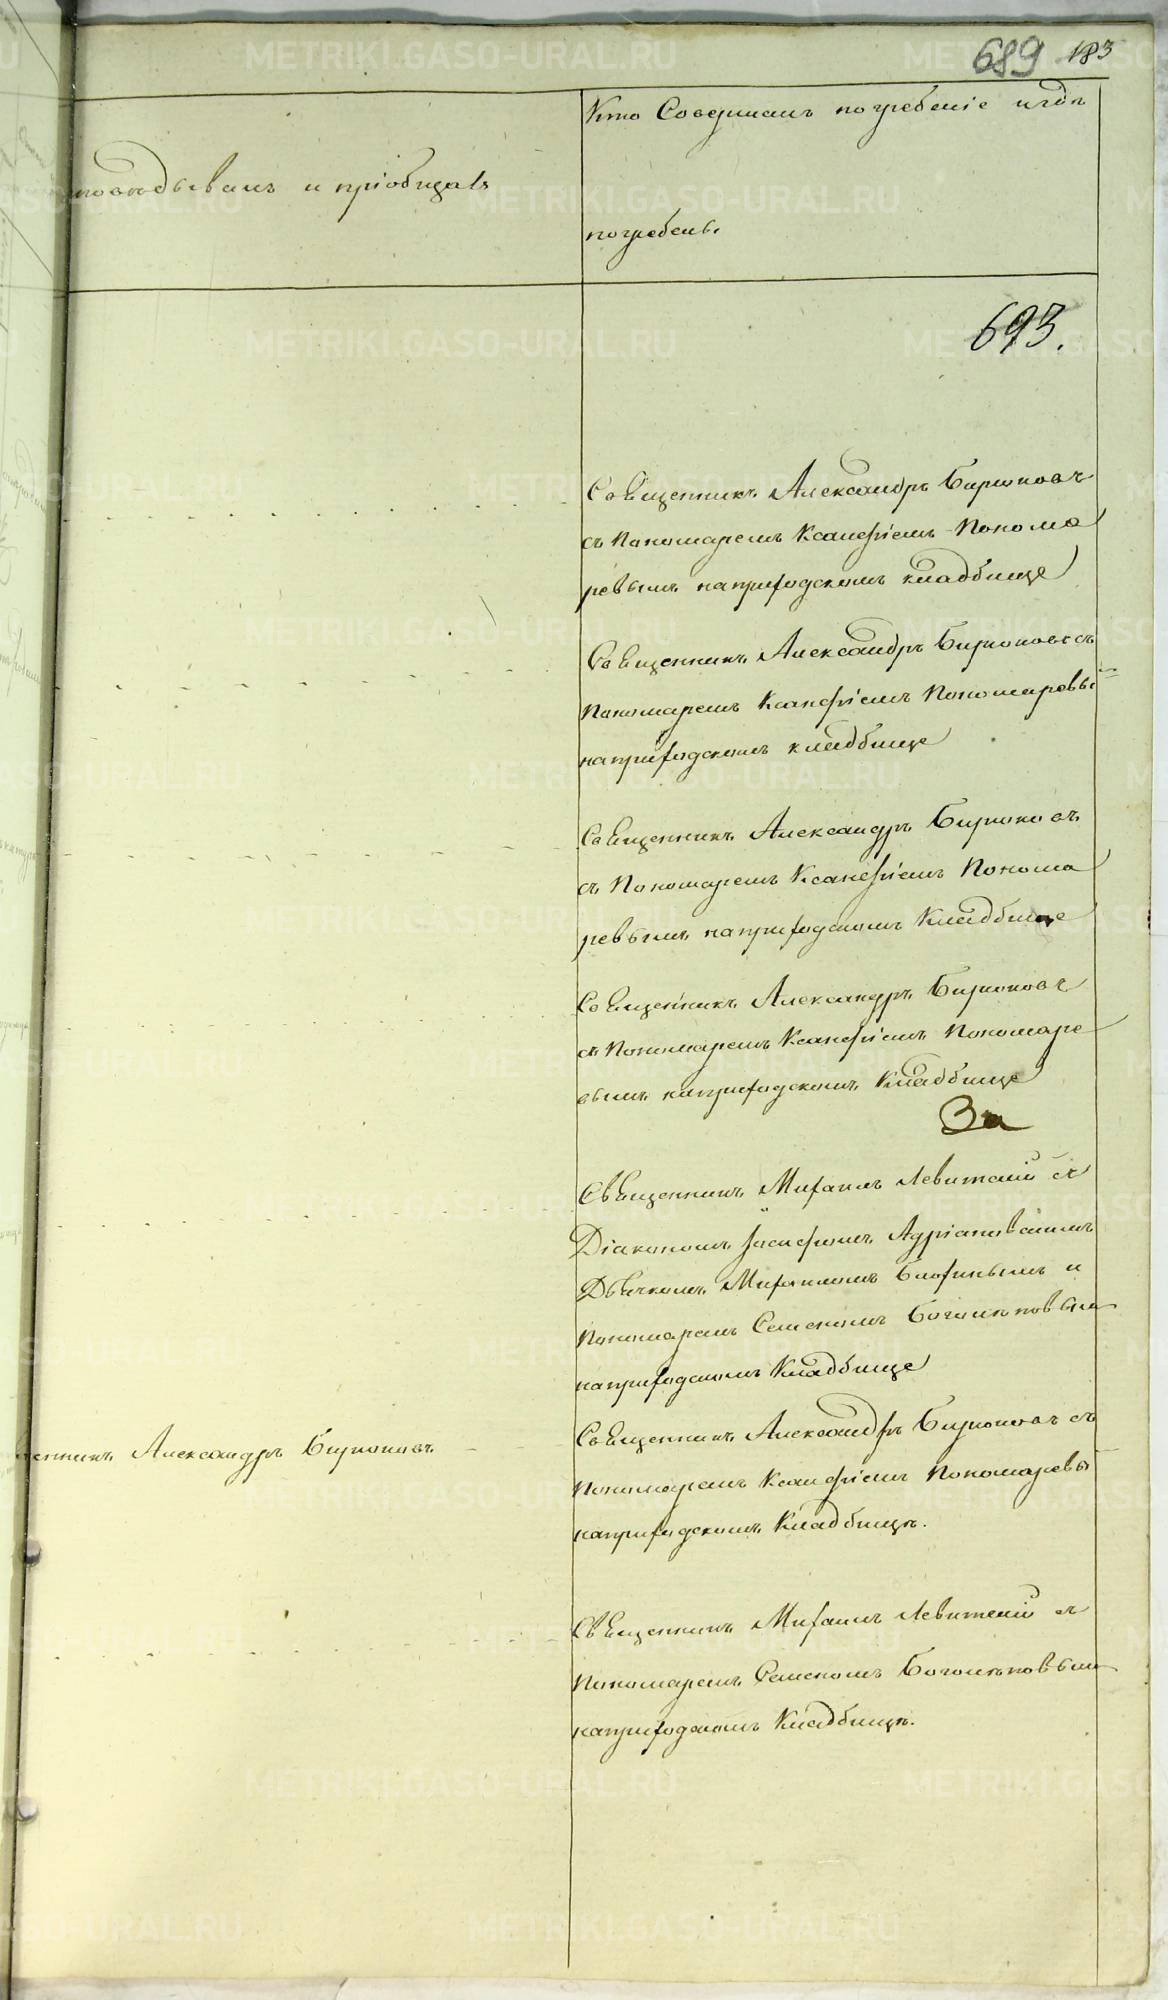 689 183
Кто Совершалъ погребеніе и гдѣ
исповѣдывалъ и пріобщалъ
погребенъ.
693.
Священникъ Александръ Бирюковъ
съ Пономаремъ Ксанфіемъ Понома
ревымъ на приходскомъ кладбище
Священникъ Александръ Бирюковъ съ
Пономаремъ Ксанфіемъ Пономаревы
на приходскомъ кладбище
Священникъ Александръ Бирюковъ
съ Пономаремъ Ксанфіемъ Понома
ревымъ на приходскомъ Кладбище
Священникъ Александръ Бирюковъ
съ Пономаремъ Ксанфіемъ Пономаре
вымъ на приходскомъ Кладбище
За
Священникъ Михаилъ Левитскій съ
Діакономъ Іосифомъ Адріановскимъ
Дьячкомъ Михаиломъ и
Пономаремъ Семеномъ Боголюбовым
на приходскомъ Кладбище
Священникъ Александръ Бирюковъ съ
щенникъ Александръ Бирюковъ
Пономаремъ Ксанфіемъ Пономаревы
на приходскомъ Кладбищѣ.
Священникъ Михаилъ Левитскій съ
Пономаремъ Семеномъ Боголюбовым
на приходскомъ Кладбищѣ.
METRIKI.GASO-URAL.RU